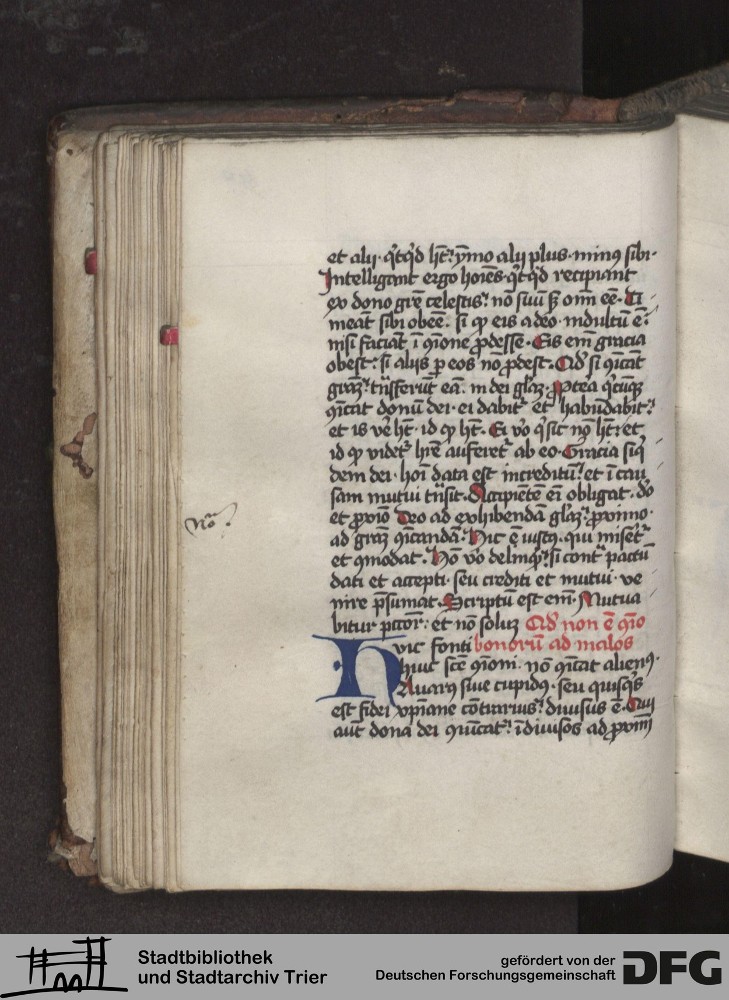 et alij· q̈tq̈d ht̄: ỹmo alij plus· minus sibi·
Intelligant ergo hoīes· q̈tq̈d recipiant
ex dono grē celestis: nō suū ſꝫ om̄i eē· Ti
meāt sibi obeē· si qꝫ eis a deo· indultū ē:
nisi faciāt ī q̄ione ꝓdesse· Eis em̄ gracia
obest: si alijs ꝑ eos nō ꝓdest· Qd̛ si q̄icāt
grāꝫ: tn̄sferūt eā· in dei gl̄aꝫ· Ꝓptea q̄cūqꝫ
q̄icat donū dei· ei dabit̛ et habūdabit̛:
et is ve̛ ht̄· id qꝫ ht̄· Ei vơ q̛ sic nō ht̄: et
id qꝫ videt̛ hr̄e auferet̛ ab eo· Gracia siq̛
dem dei· hoī data est increditū: et ī cau
sam mutui tn̄sit· Accipiētē em̄ obligat· dō
et ꝓxiō Deo ad exhibendā gl̄aꝫ: ꝓximo·
ad grāꝫ q̄icandā· Hic ē iustus· qui miset̛
et q̄modat· Nō vơ delinq̛t: si cont̛ pactū
dati et accepti· seu crediti et mutui· ve
nire p̄sumat· Scriptū est em̄· Mutua
bitur pctōr: et nō soluꝫ Qd̛ non ē q̄io
Huic fonti bonorū ad malos
huic scē q̄ioni· nō q̄icat alienus·
Auarus siue cupidus· seu quisq̛s
est fidei xp̄iane cōtrarius: diuisus ē· Qui
aūt dona dei q̄uicāt: īdiuisos ad ꝓximī
Nōa
Stadtbibliothek
und Stadtarchiv Trier
gefördert von der
Deutschen Forschungsgemeinschaft
DFG